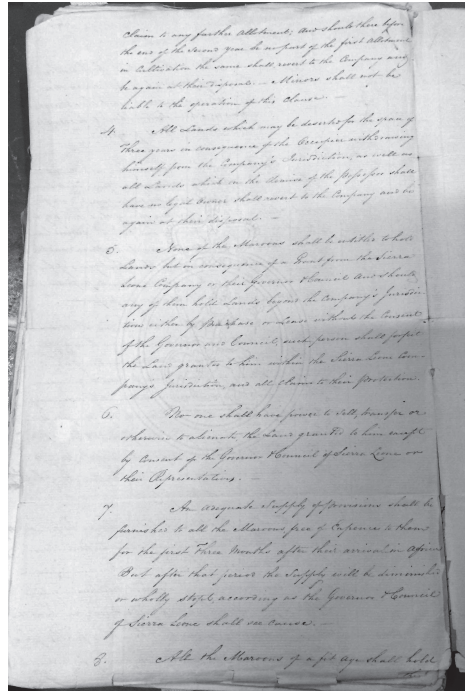 Claim to any further Allotment; And should there before
the end of the Second year be no part of the first Allotment
in Cultivation the same shall revert to the Company and
be again at their disposal — Minors shall not be
liable to the operation of this Clause
4. All Lands which may be deserted for the space of
Three years in consequence of the Occupier withdrawing
himself from the Company's Jurisdiction, as well as
all Lands which on the demise of the Possessor shall
have no legal Owner shall revert to the Company and be
again at their disposal —
5. None of the Maroons shall be entitled to hold
Lands but in consequence of a Grant from the Sierra
Leone Company or their Governor & Council And should
any of them hold Lands beyond the Company's Jurisdic-
tion either by Purchase or Lease without the Consent
of the Governor and Council, such person shall forfeit
the Land granted to him within the Sierra Leone Com-
pany's Jurisdiction, and all Claim to their Protection
6. No one shall have power to Sell, transfer or
otherwise to alienate the Land granted to him except
by Consent of the Governor & Council of Sierra Leone or
their Representatives. —
7. An adequate Supply of Provisions shall be
furnished to all the Maroons free of Expence to them
for the first Three Months after their arrival in Africa
But after that period the Supply will be diminished
or wholly stopt, according as the Governor & Council
of Sierra Leone shall see cause. —
8. All the Maroons of a fit age shall hold